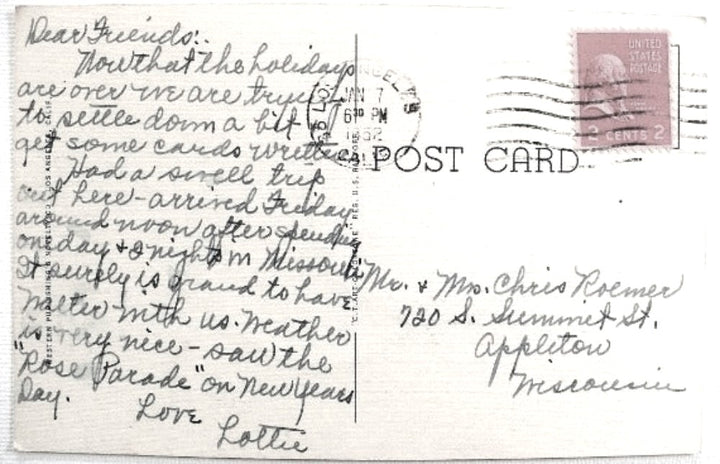 Dear Friends:
Now that the holidays
are over we are trying
to settle down a bit &
get some cards written
Had a swell trip
out here - arrived Friday
around noon after spending
one day & 2 nights in Missouri
It surely is grand to have
Walter with us. Weather
is very nice - saw the
"Rose Parade" on New Years
Day.
Love
Lottie
LOS ANGELES
JAN 7
6 30 PM
1952
CALIF.
UNITED
STATES
POSTAGE
2 CENTS 2
POST CARD
Mr. & Mrs. Chris Roemer
720 S. Summit St.
Appleton
Wisconsin
WESTERN PUBLISHING & NOVELTY CO., LOS ANGELES, CALIF.